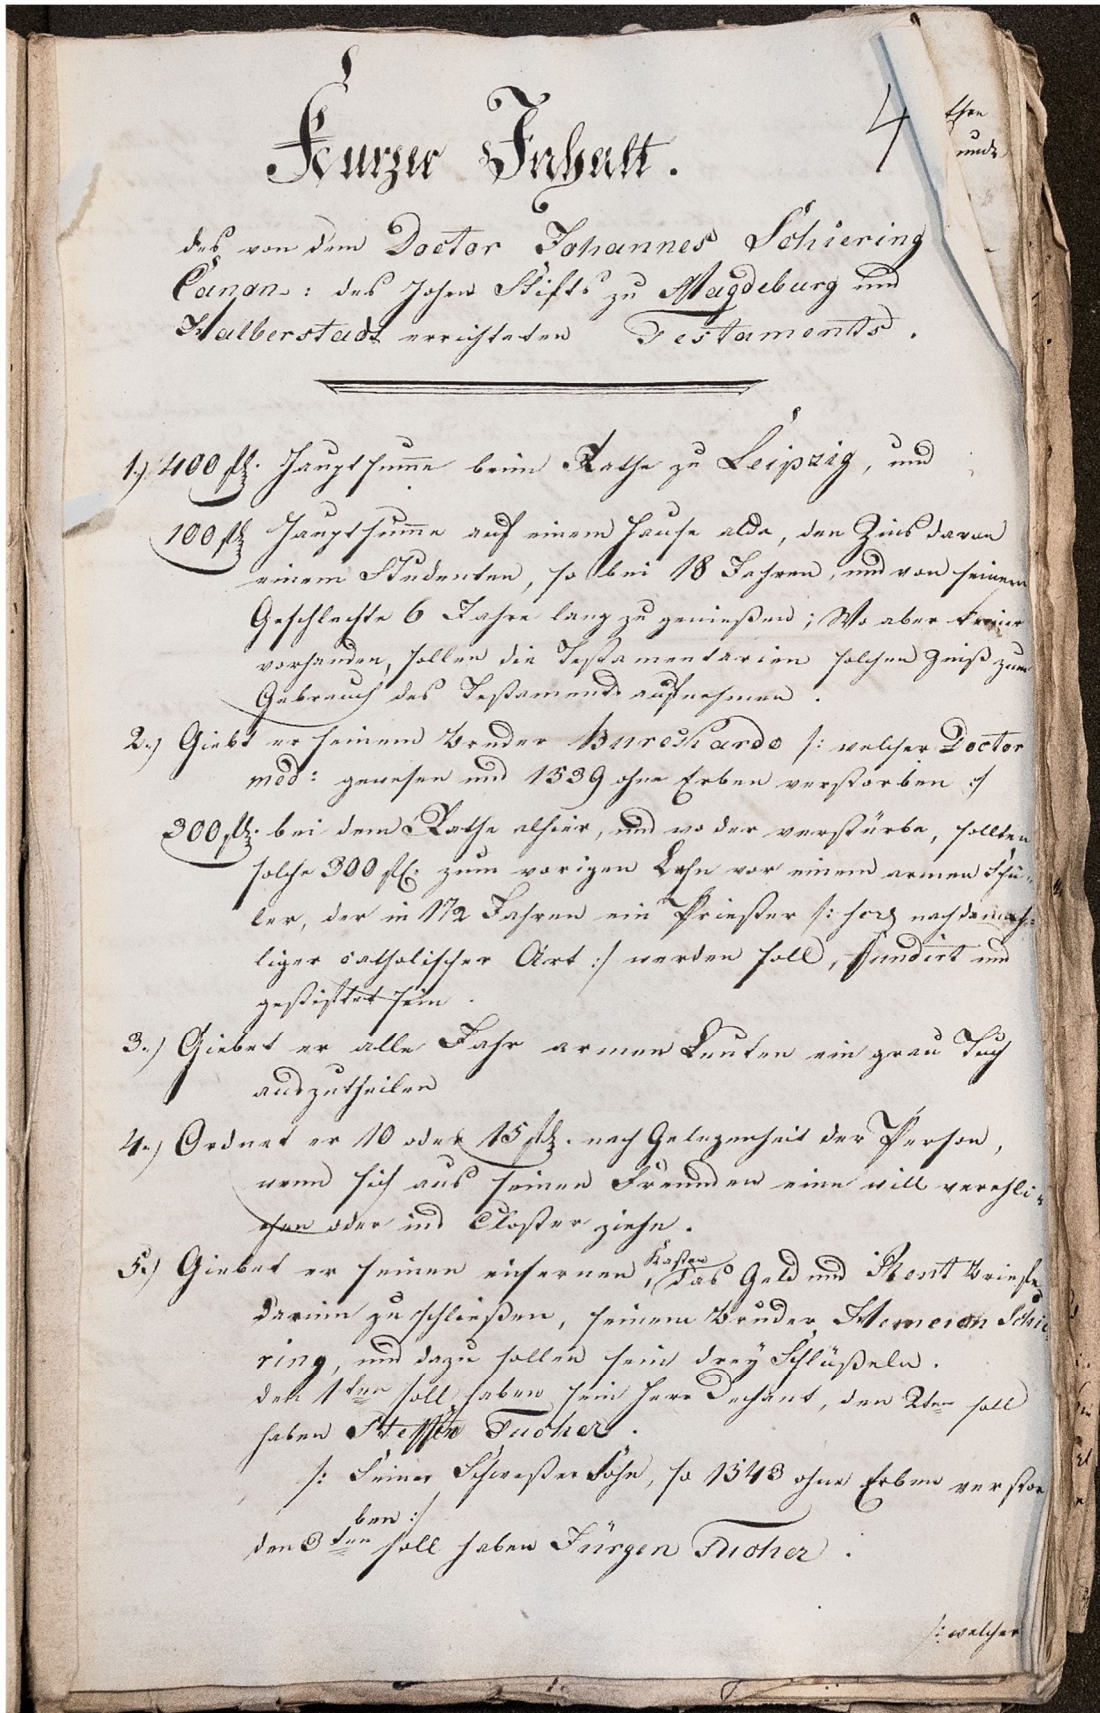 4
then
und
Kurzer Inhalt.
des von dem Doctor Johannes Schiering
Canon: des hohen Stifts zu Magdeburg und
Halberstadt errichteten Testaments.
1.) 400 fl. Hauptsum̅e beim Rathe zu Leipzig, und
100 fl. Hauptsum̅e auf einem Hause alda, den Zins davon
einem Studenten, so bei 18 Jahren, und von seinem
Geschlechte 6 Jahre lang zu genießen; Wo aber keiner
vorhanden, sollen die Testamentarien solchen Zinß zum
Gebrauch des Testaments aufnehmen.
2.) Giebt er seinem Bruder Burchardo /: welcher Doctor
med: gewesen und 1539 ohne Erben verstorben :/
300 fl. bei dem Rathe alhier, und wo der verstürbe, sollten
solche 300 fl. zum vorigen Lehn vor einem armen Schü-
ler, der in 1 1/2 Jahren ein Priester /: nach damah-
liger catholischer Art :/ werden soll, fundirt und
gestiftet sein.
3.) Giebet er alle Jahr armen Leuten ein grau Tuch
auszutheilen
4.) Ordnet er 10 oder 15 fl. nach Gelegenheit der Person,
wenn sich aus seinen Freunden eine will verehli-
chen oder ins Closter ziehn.
5.) Giebet er seinen eisernen Kasten, das Geld und Rent Briefe
darinn zu schließen, seinem Bruder Schie-
ring, und dazu sollen sein drey Schlüßeln.
den 1ten soll haben sein Herr Dechant, den 2ten soll
haben Steffen Tucher.
/: Seiner Schwester Sohn, so 1543 ohne Erben verstor
ben :/
den 3ten soll haben Jürgen Tucher.
/: welcher